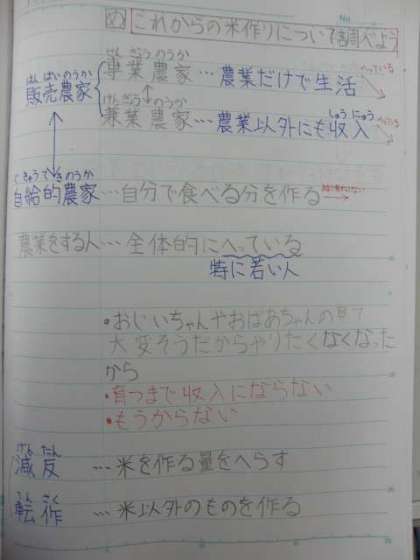 No.
め これからの米作りについて調べよう
せんぎょうのうか
専業農家…農業だけで生活 へっている
はんばいのうか
販売農家
けんぎょうのうか
兼業農家…農業以外にも収入 へっている
しゅうにゅう
じきゅうてきのうか
自給的農家…自分で食べる分を作る
農業をする人…全体的にへっている
特に若い人
・おじいちゃんやおばあちゃんの見て
大変そうだからやりたくなくなった
から
・育つまで収入にならない
・もうからない
げんたん
減反 …米を作る量をへらす
てんさく
転作 …米以外のものを作る